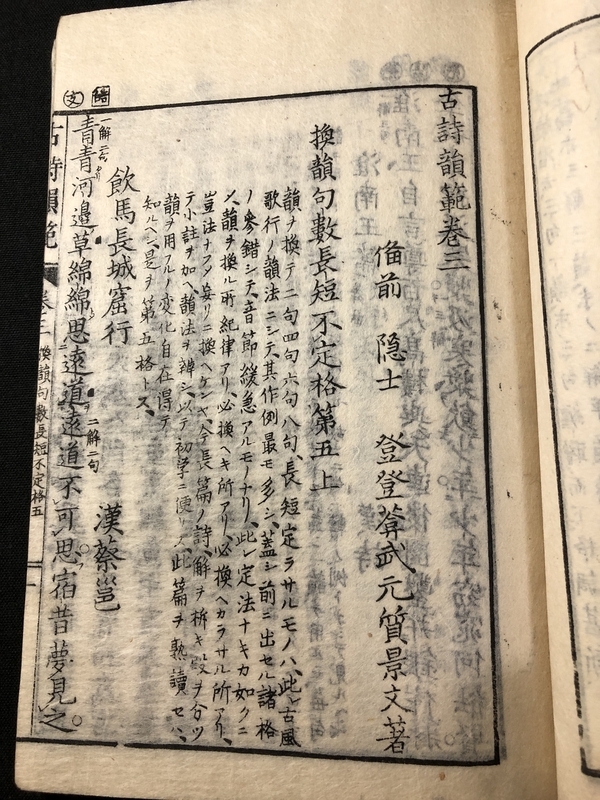 古詩韻範卷三
備前 隠士 登登葊武元質景文著
換韻句數長短不定格第五上
韻ヲ換テ二句四句六句八句、長短定ラサルモノハ、此レ古風
歌行ノ韻法ニシテ、其作例最モ多シ、蓋シ前ニ出セル諸格
ノ參錯シテ、音節緩急アルモノナリ、此レ定法ナキカ如クニ
〆、韻ヲ換ル所紀律アリ、必換ヘキ所アリ、必換ヘカラサル所アリ、
豈法ナフメ妄リニ換ヘケンヤ、今長篇ノ詩、解ヲ析キ段ヲ分ツ
テ小註ヲ加ヘ、韻法ヲ辨シ、以テ初学ニ便リス、此篇ヲ熟讀セハ、
韻ヲ用フルノ変化自在得テ
知ルヘシ、是ヲ第五格トス、
飲馬長城窟行 漢蔡邕
一解二句
青青河邊草綿綿思遠道遠道不可思宿昔夢見之
二解二句
語
文
古詩韻範 卷三 換韻句數長短不定格五 一